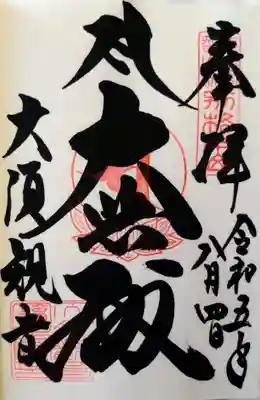 奉拝
令和五年
八月四日
大悲殿
大須観音